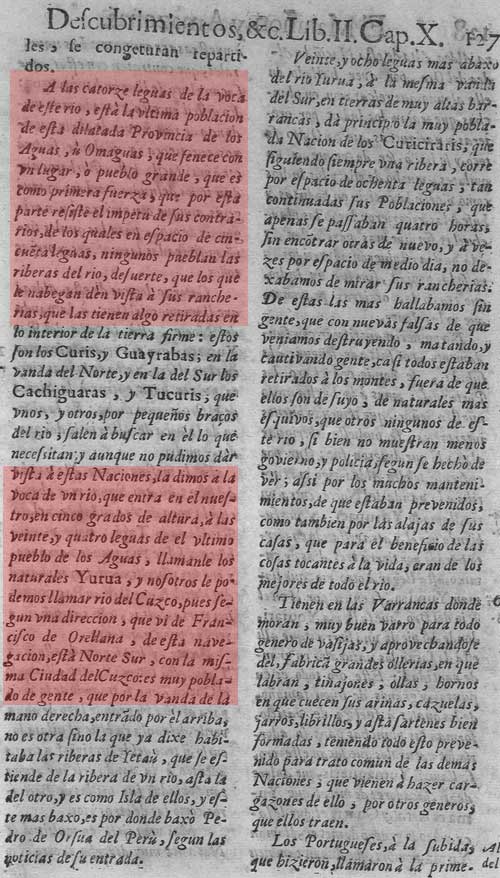 Descubrimientos, &c. Lib. II. Cap. X. 127
les, se congeturan reparti-
dos.
A las catorze leguas de la voca
de este rio, està la vltima poblacion
de esta dilatada Provincia de los
Aguas, ù Omaguas; que fenece con
vn lugar, ò pueblo grande, que es
como primera fuerza, que por esta
parte resiste el impetu de sus contra-
rios, de los quales en espacio de cin-
cuẽta leguas, ningunos pueblan las
riberas del rio, de suerte, que los que
le nabegan dèn vista à sus ranche-
rias, que las tienen algo retiradas en
lo interior de la tierra firme: estos
son los Curis, y Guayrabas; en la
vanda del Norte, y en la del Sur los
Cachiguaras, y Tucuris; que
vnos, y otros, por pequeños braços
del rio, salen à buscar en èl lo que
necessitan: y aunque no pudimos dàr
vista à estas Naciones, la dimos a la
voca de vn rio, que entra en el nues-
tro, en cinco grados de altura, à las
veinte, y quatro leguas de el vltimo
pueblo de los Aguas, llamanle los
naturales Yurua, y nosotros le po-
demos llamar rio del Cuzco, pues se-
gun vna direccion, que vi de Fran-
cisco de Orellana, de esta nave-
gacion, està Norte Sur, con la mis-
ma Ciudad del Cuzco: es muy pobla-
do de gente, que por la vanda de la
mano derecha, entrado por èl arriba,
no es otra sino la que ya dixe habi-
taba las riberas de Yetaù, que se es-
tiende de la ribera de vn rio, asta la
del otro, y es como Isla de ellos, y es-
te mas baxo, es por donde baxò Pe-
dro de Orsua del Perù, segun las
noticias de su entrada.
Veinte, y ocho leguas mas abaxo
del rio Yurua, à la mesma vanda
del Sur, en tierras de muy altas bar-
rancas, dà principio la muy pobla-
da Nacion de los Curiciraris, que
siguiendo siempre vna ribera, corre
por espacio de ochenta leguas; tan
continuadas sus Poblaciones, que
apenas se passaban quatro horas,
sin encõtrar otras de nuevo, y à ve-
zes por espacio de medio dia, no de-
xabamos de mirar sus rancherias.
De estas las mas hallabamos sin
gente, que con nuevas falsas de que
veniamos destruyendo, matando, y
cautivando gente, casi todos estaban
retirados à los montes, fuera de que
ellos son de suyo, de naturales mas
esquivos, que otros ningunos de es-
te rio, si bien no muestran menos
govierno, y policia, segun se hechò de
ver; assi por los muchos manteni-
mientos, de que estaban prevenidos,
como tambien por las alajas de sus
casas, que para el beneficio de las
cosas tocantes à la vida, eran de los
mejores de todo el rio.
Tienen en las Varrancas donde
moran, muy buen varro para todo
genero de vasijas; y aprovechandose
dèl, fabricã grandes ollerias, en que
labran, tinajones, ollas, hornos
en que cuecen sus arinas, cazuelas,
jarros, librillos, y asta sartenes bien
formadas, teniendo todo esto preve-
nido para trato comun de las demàs
Naciones; que vienen à hazer car-
gazones de ello, por otros generos,
que ellos traen.
Los Portugueses, à la subida,
que hizieron, llamaron à la prime-
Al
del